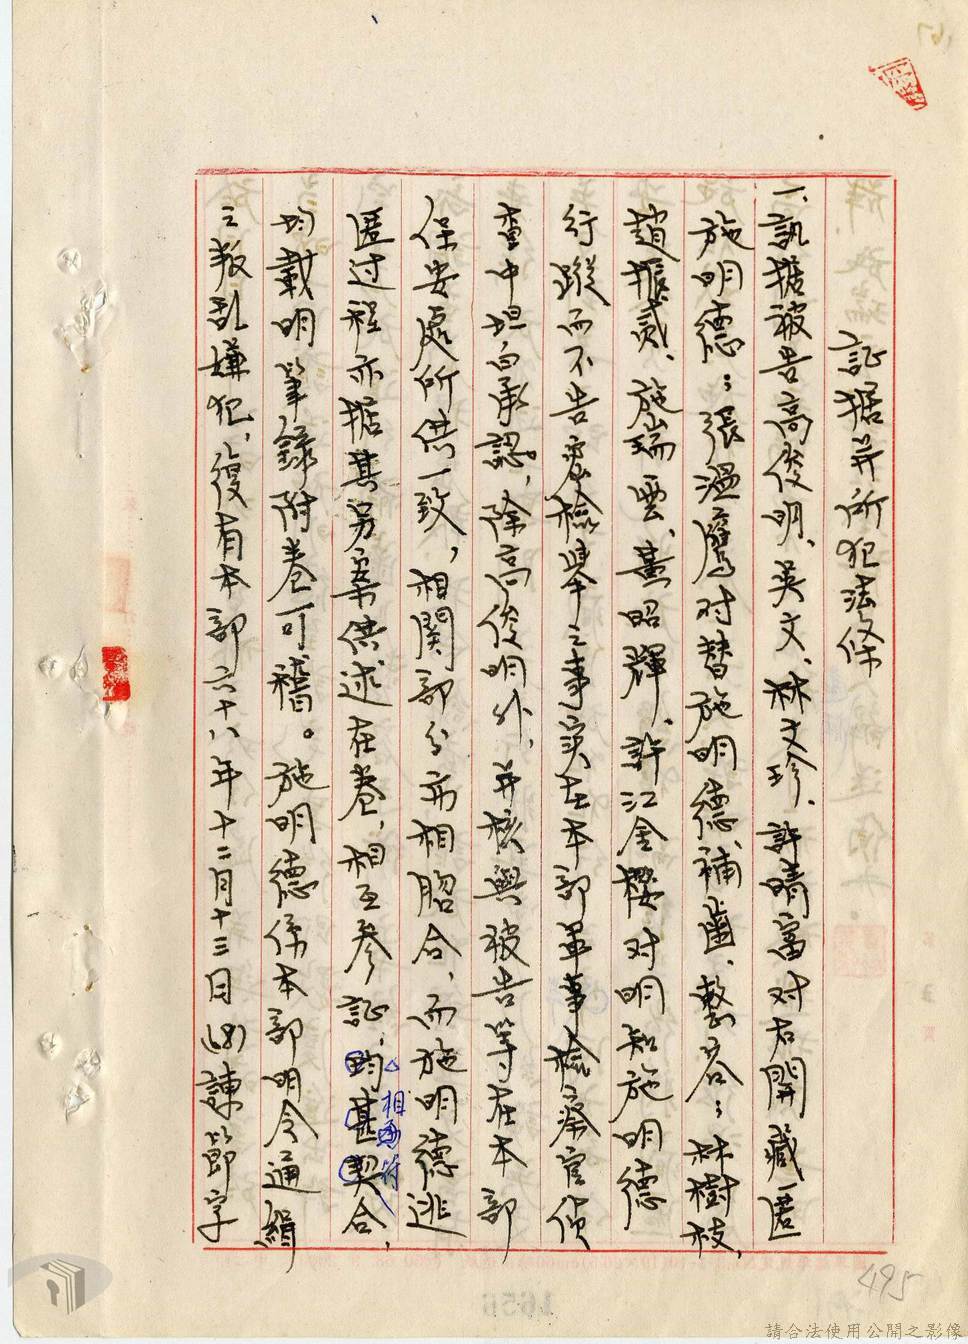 証据并所犯法條
一、訊据被告高俊明、吳文、林文珍、許晴富对右開藏匿
施明德；張溫鷹对替施明德補齒、整容；林樹枝、
趙振貳、施瑞雲、黃昭輝、許江金櫻对明知施明德
行蹤而不告密檢舉之事实在本部軍事檢察官偵
查中坦白承認，除高俊明外，并核與被告等在本部
保安處所供一致，相関部分亦相脗合，而施明德逃
匿过程亦据其另案供述在卷，相互参証，均甚契合，
相符
均載明筆錄附卷可稽。施明德係本部明令通緝
之叛乱嫌犯，復有本部六十八年十二月十三日(68)諫節字
495
1656
請合法使用公開之影像